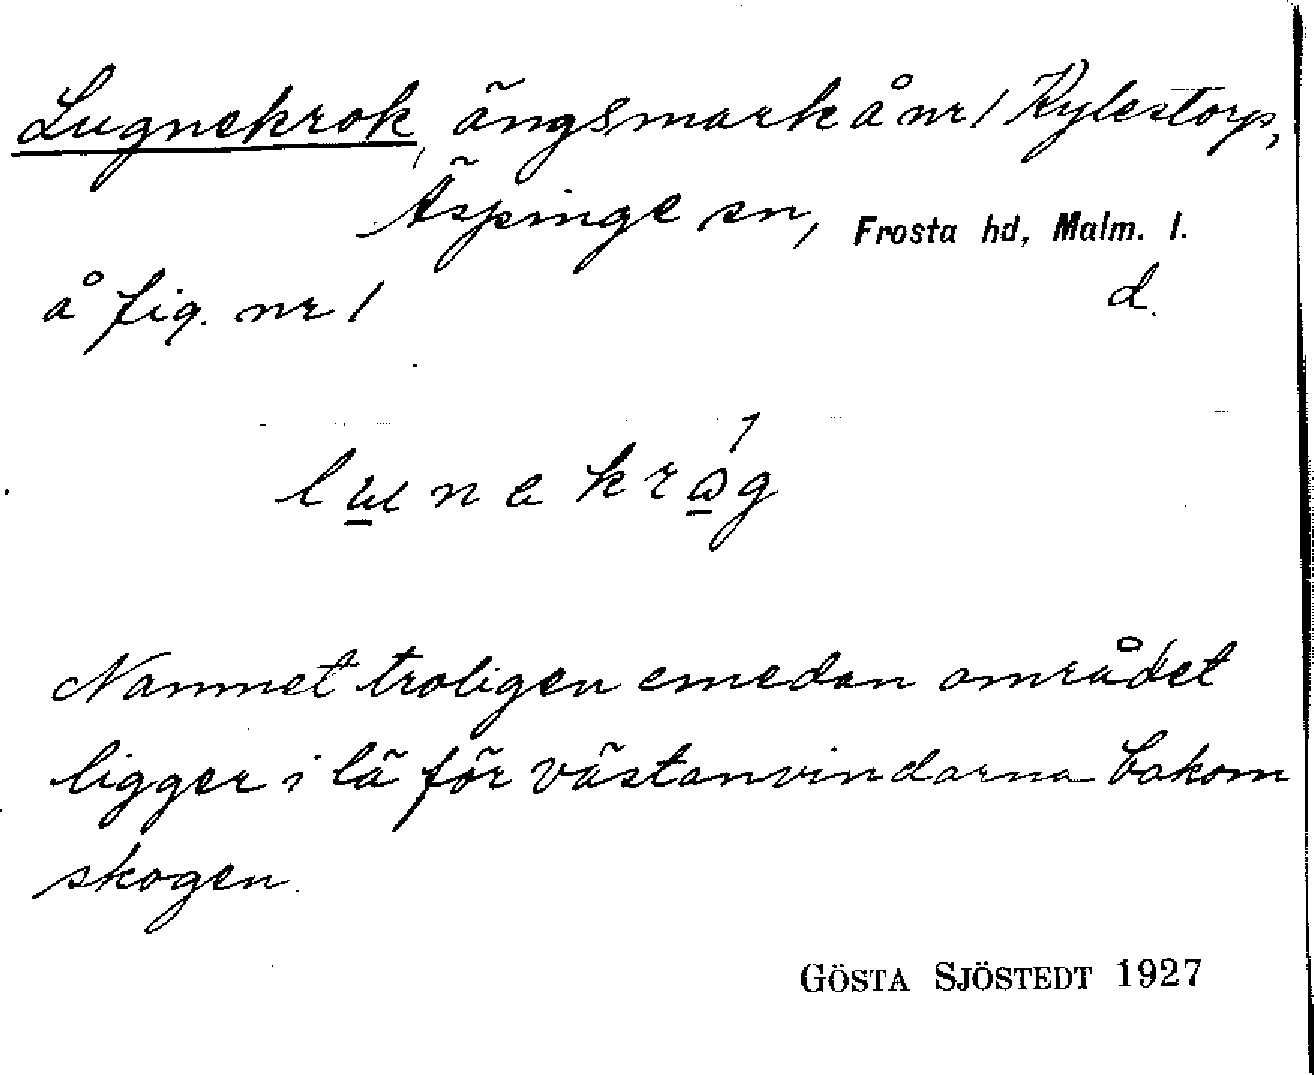 Lugnekrok, ängsmark å nr 1 Rylestorp,
Äspinge sn, Frosta hd, Malm. l.
å fig. nr 1 d.
lunekråg
Namnet troligen emedan området
ligger i lä för västanvindarna bakom
skogen.
GÖSTA SJÖSTEDT 1927